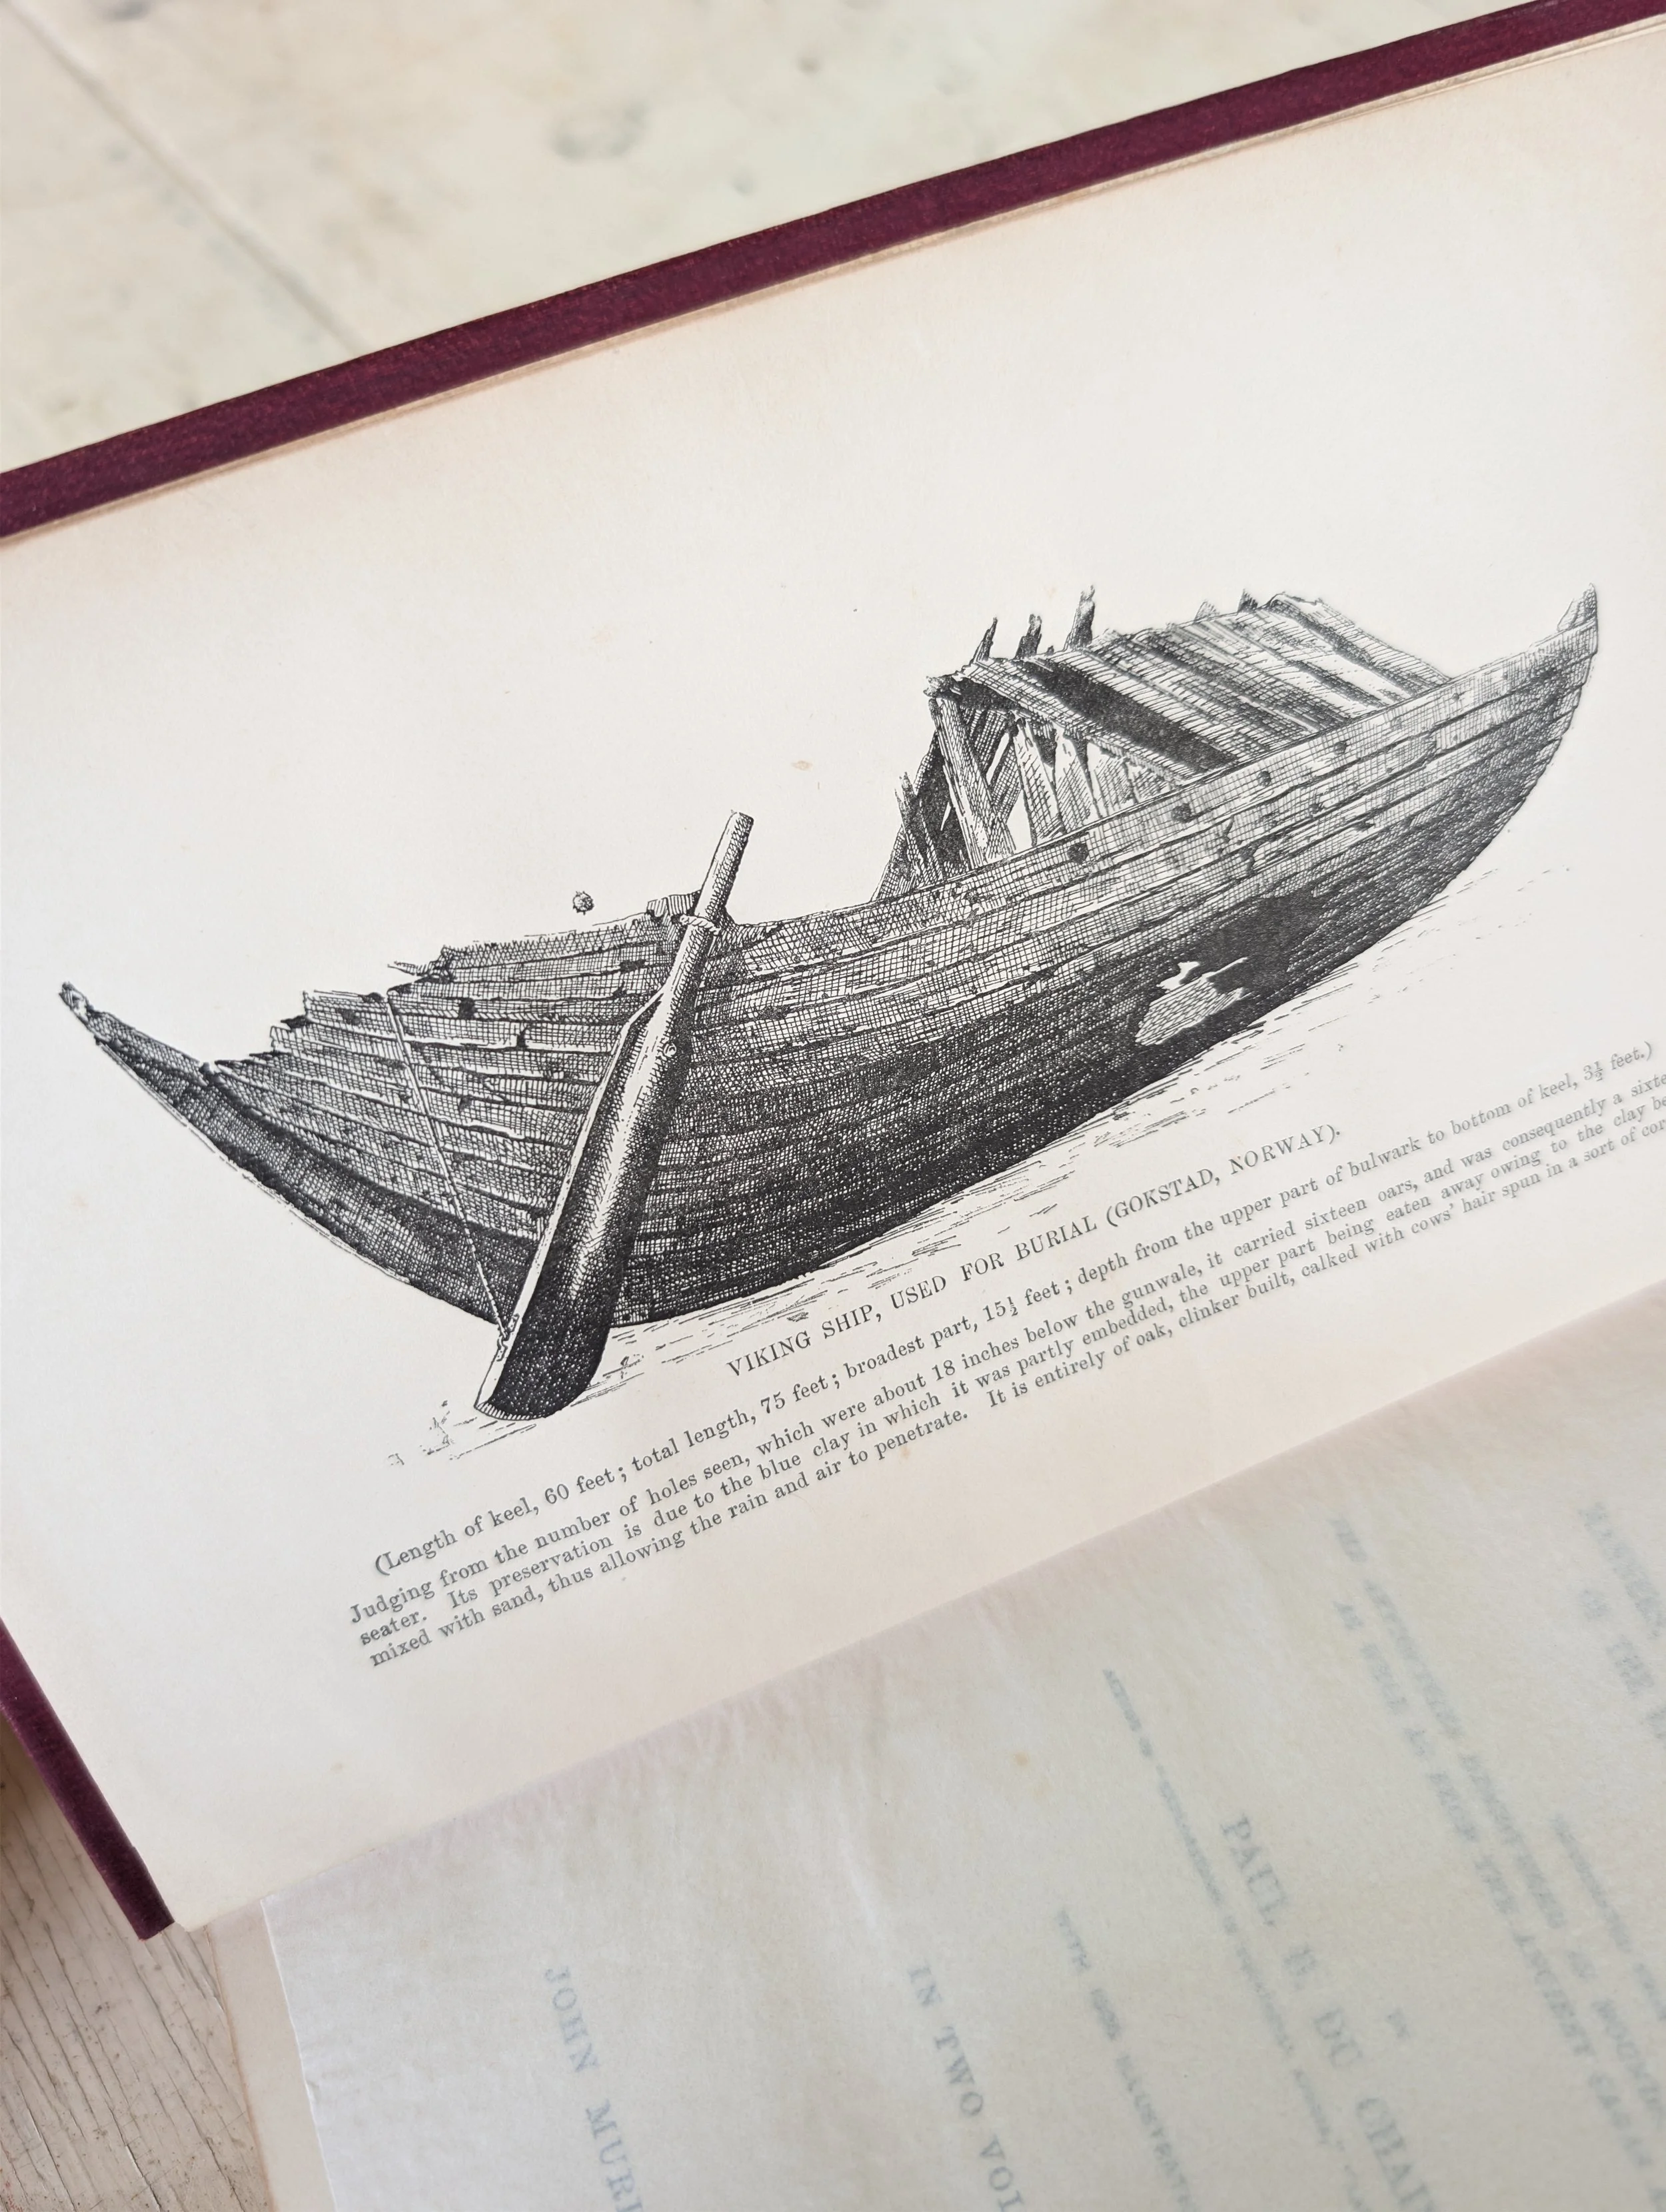 VIKING SHIP, USED FOR BURIAL (GOKSTAD, NORWAY).
(Length of keel, 60 feet; total length, 75 feet; broadest part, 15½ feet; depth from the upper part of bulwark to bottom of keel, 3½ feet.)
Judging from the number of holes seen, which were about 18 inches below the gunwale, it carried sixteen oars, and was consequently a sixte
seater. Its preservation is due to the blue clay in which it was partly embedded, the upper part being eaten away owing to the clay be
mixed with sand, thus allowing the rain and air to penetrate. It is entirely of oak, clinker built, calked with cows' hair spun in a sort of cor
PAUL B. DU CHAI
IN TWO VOL
JOHN MURR